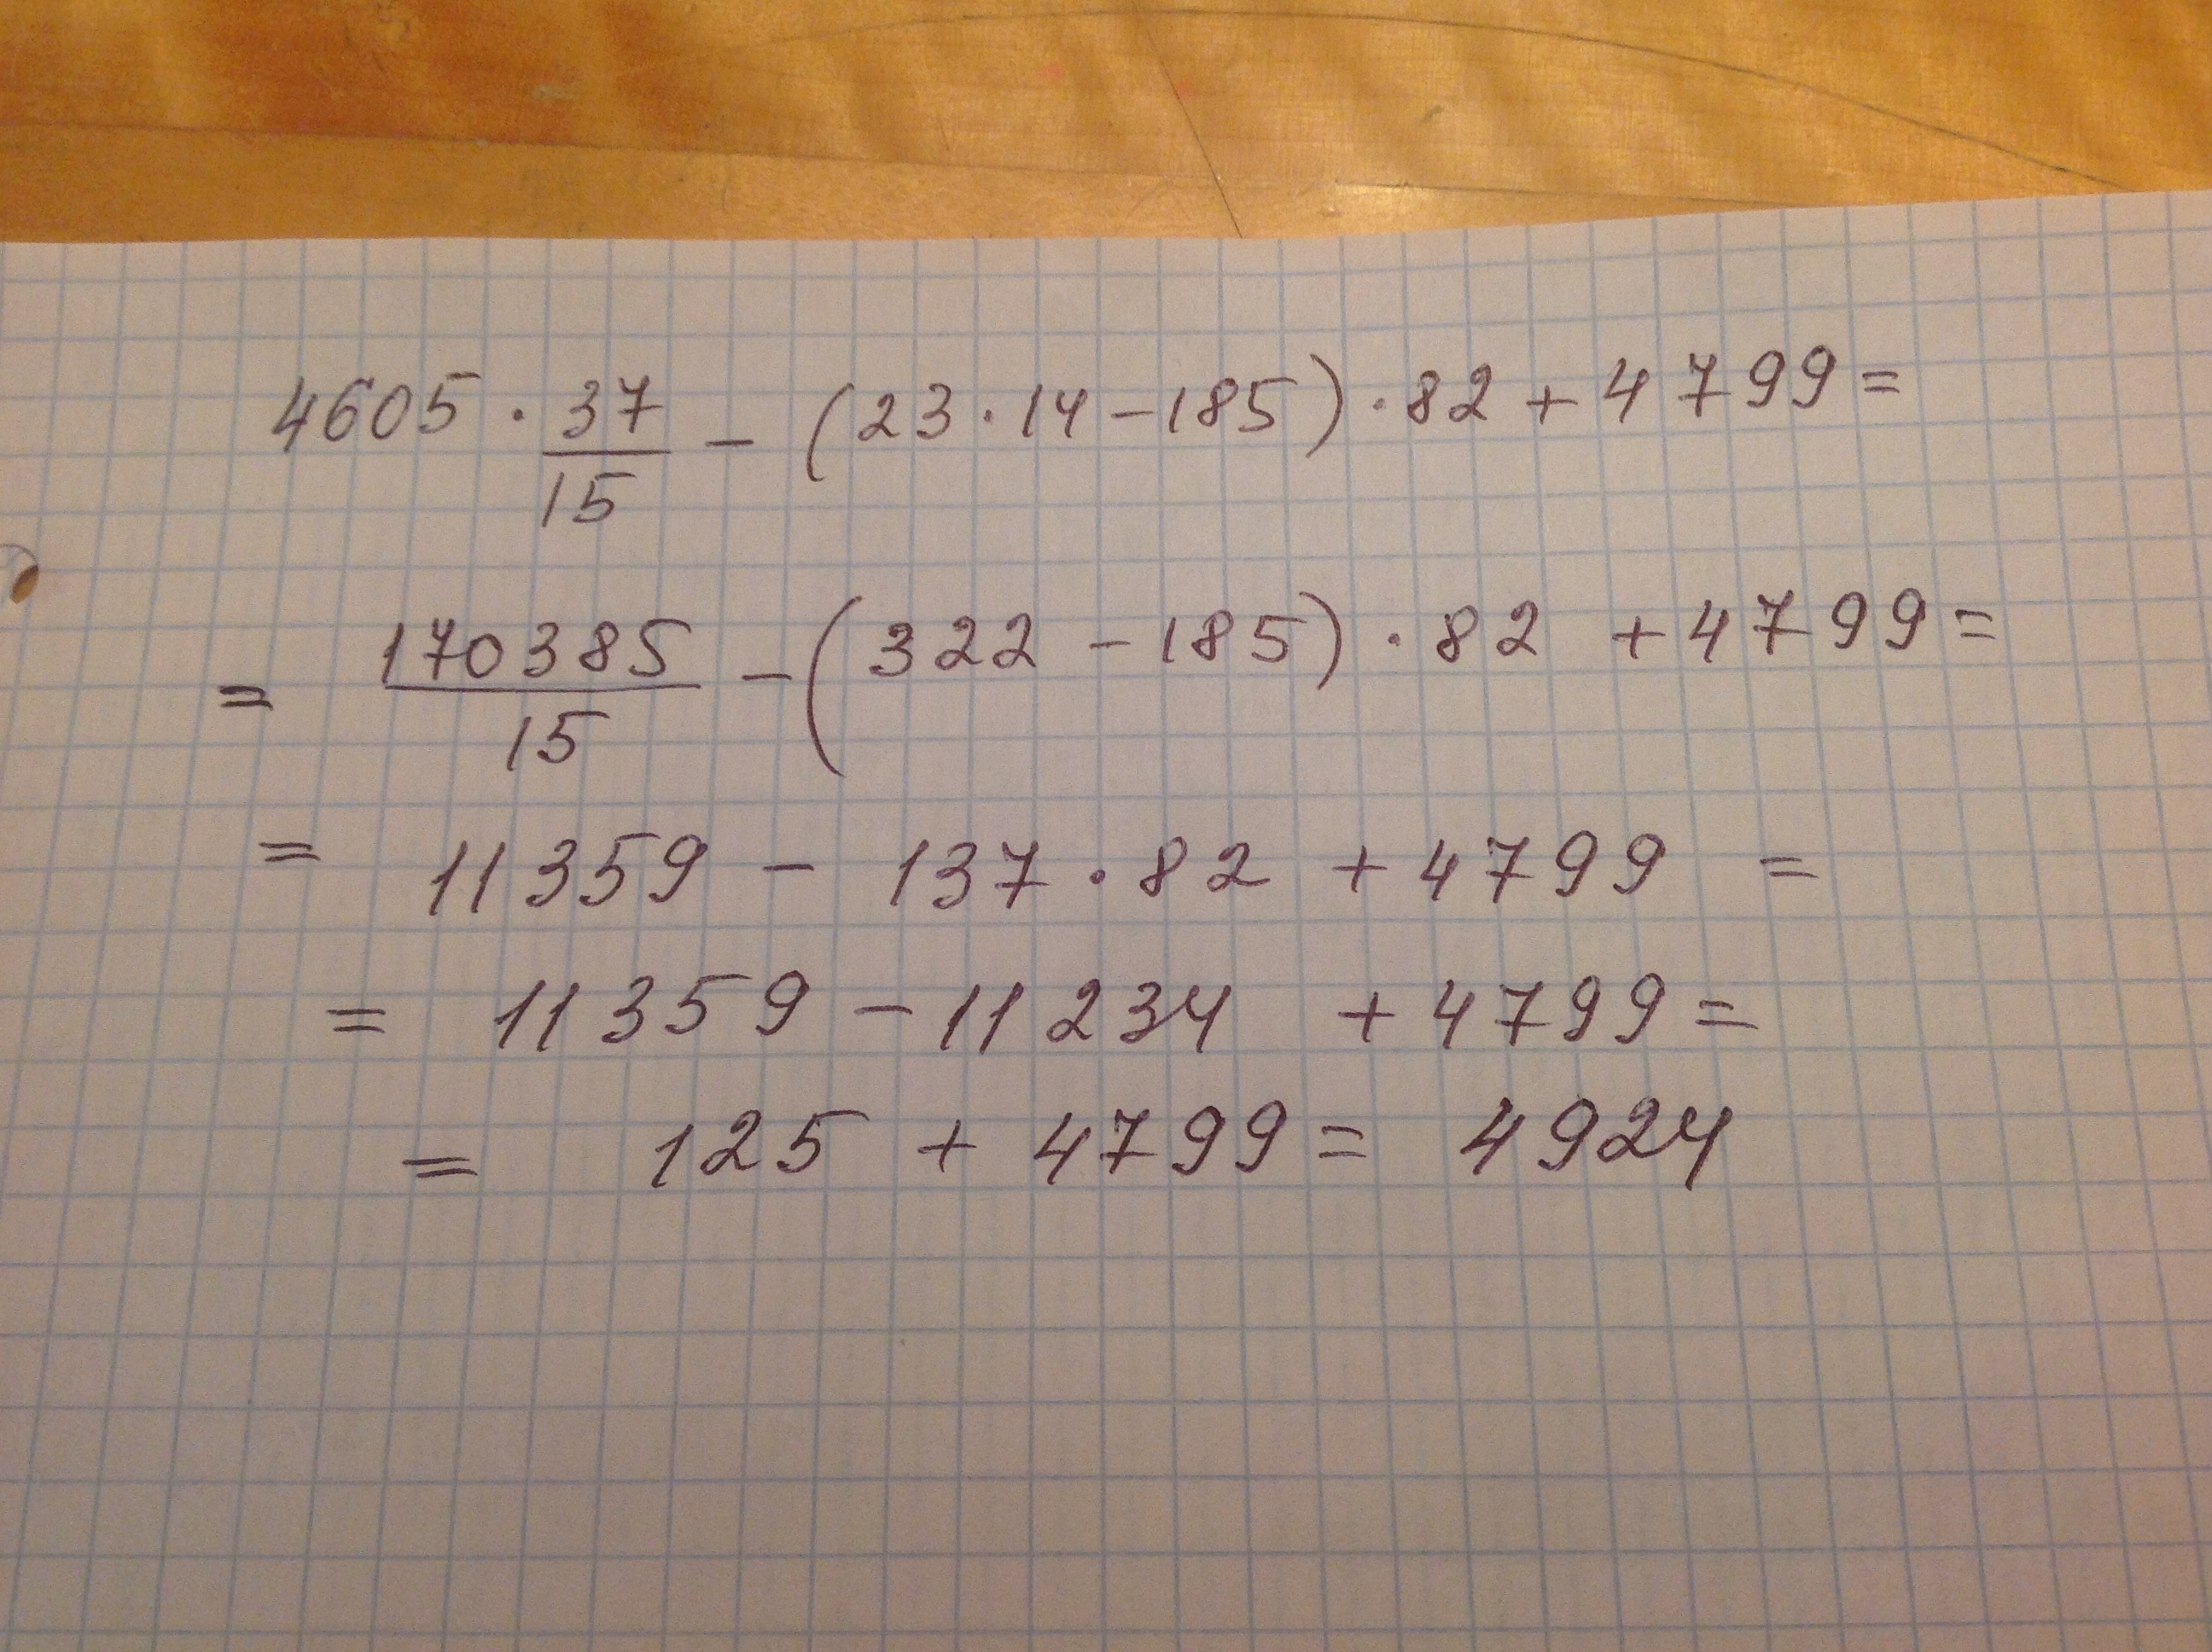 4605 · 37/15 - (23 · 14 - 185) · 82 + 4799 =
= 170385/15 - (322 - 185) · 82 + 4799 =
= 11359 - 137 · 82 + 4799 =
= 11359 - 11234 + 4799 =
= 125 + 4799 = 4924